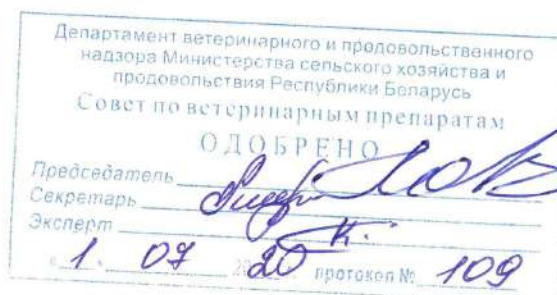 Департамент ветеринарного и продовольственного
надзора Министерства сельского хозяйства и
продовольствия Республики Беларусь
Совет по ветеринарным препаратам
ОДОБРЕНО
Председатель
Секретарь
Эксперт
« 1 » 07 2020 протокол № 109